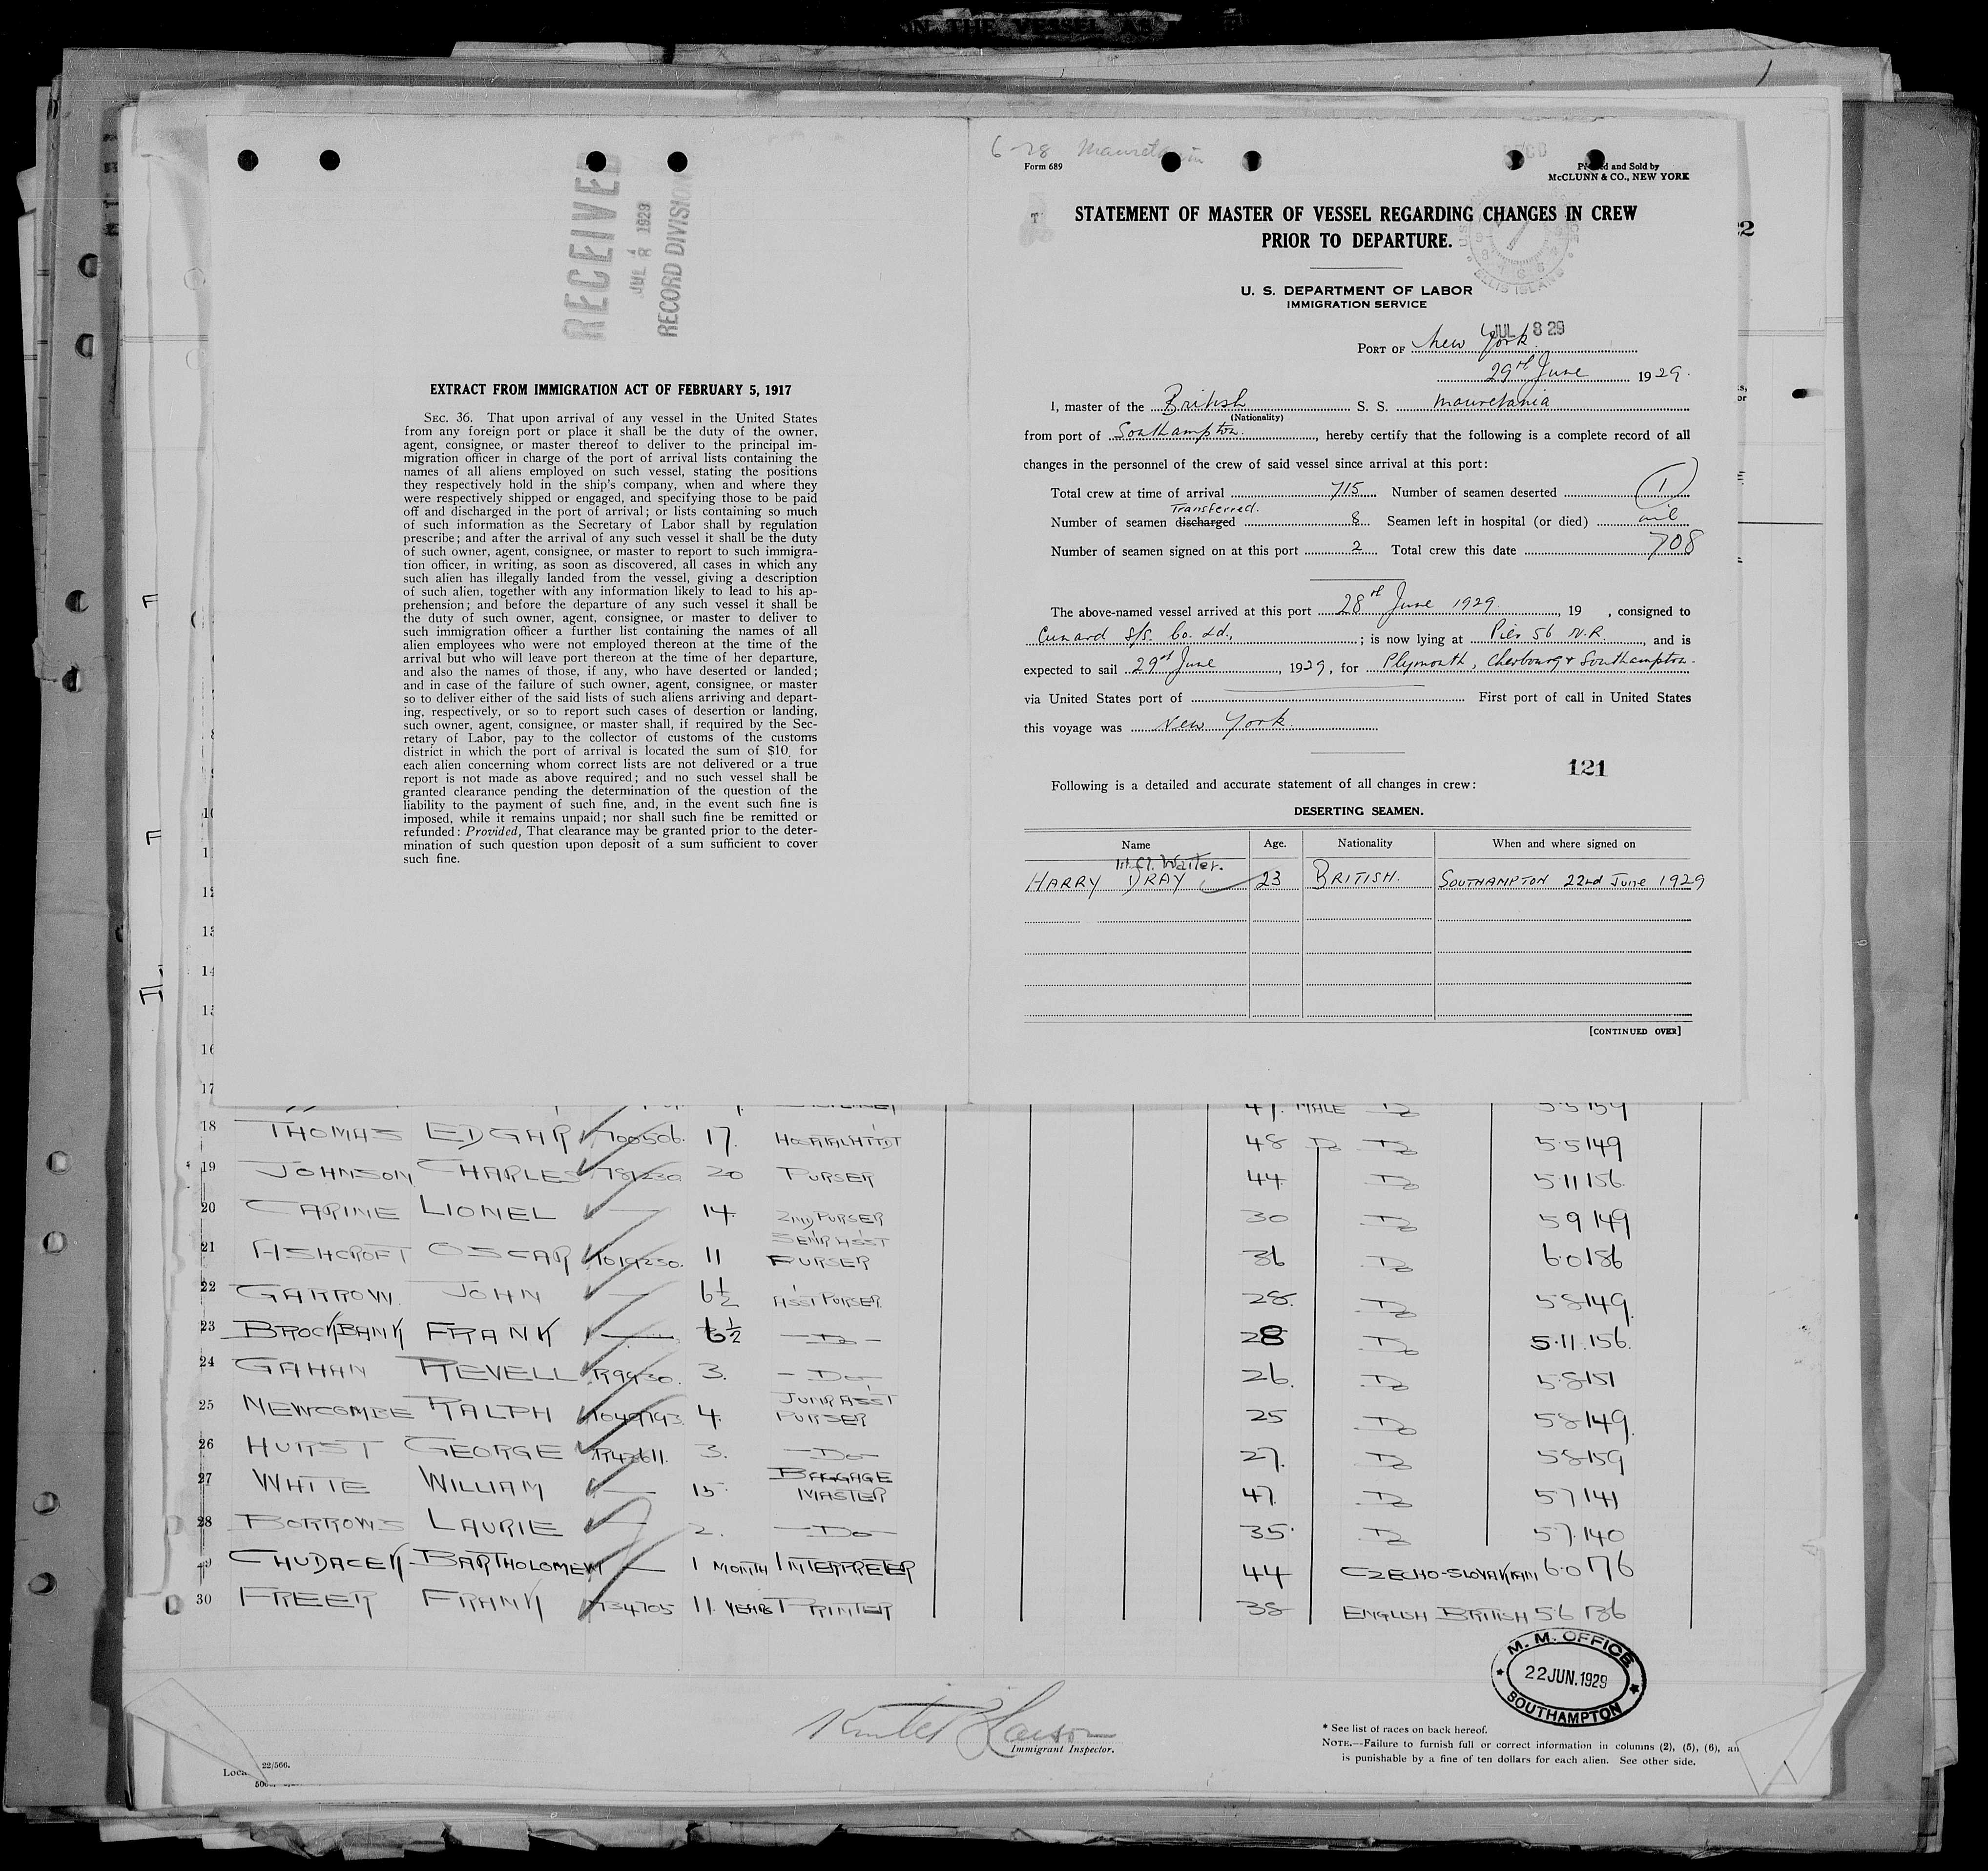 RECEIVED
JUL 1929
RECORD DIVISION
EXTRACT FROM IMMIGRATION ACT OF FEBRUARY 5, 1917
SEC. 36. That upon arrival of any vessel in the United States
from any foreign port or place it shall be the duty of the owner,
agent, consignee, or master thereof to deliver to the principal im-
migration officer in charge of the port of arrival lists containing the
names of all aliens employed on such vessel, stating the positions
they respectively hold in the ship's company, when and where they
were respectively shipped or engaged, and specifying those to be paid
off and discharged in the port of arrival; or lists containing so much
of such information as the Secretary of Labor shall by regulation
prescribe; and after the arrival of any such vessel it shall be the duty
of such owner, agent, consignee, or master to report to such immigra-
tion officer, in writing, as soon as discovered, all cases in which any
such alien has illegally landed from the vessel, giving a description
of such alien, together with any information likely to lead to his ap-
prehension; and before the departure of any such vessel it shall be
the duty of such owner, agent, consignee, or master to deliver to
such immigration officer a further list containing the names of all
alien employees who were not employed thereon at the time of the
arrival but who will leave port thereon at the time of her departure,
and also the names of those, if any, who have deserted or landed;
and in case of the failure of such owner, agent, consignee, or master
so to deliver either of the said lists of such aliens arriving and depart-
ing, respectively, or so to report such cases of desertion or landing,
such owner, agent, consignee, or master shall, if required by the Sec-
retary of Labor, pay to the collector of customs of the customs
district in which the port of arrival is located the sum of $10 for
each alien concerning whom correct lists are not delivered or a true
report is not made as above required; and no such vessel shall be
granted clearance pending the determination of the question of the
liability to the payment of such fine, and, in the event such fine is
imposed, while it remains unpaid; nor shall such fine be remitted or
refunded: Provided, That clearance may be granted prior to the deter-
mination of such question upon deposit of a sum sufficient to cover
such fine.
6-28 Mauretania
Form 689
Printed and Sold by
McCLUNN & CO., NEW YORK
STATEMENT OF MASTER OF VESSEL REGARDING CHANGES IN CREW
PRIOR TO DEPARTURE.
ELLIS ISLAND
U. S. DEPARTMENT OF LABOR
IMMIGRATION SERVICE
JUL 8 29
PORT OF New York.
29th June 1929.
I, master of the British S. S. Mauretania
(Nationality)
from port of Southampton., hereby certify that the following is a complete record of all
changes in the personnel of the crew of said vessel since arrival at this port:
Total crew at time of arrival 715 Number of seamen deserted 1
Transferred.
Number of seamen discharged 8 Seamen left in hospital (or died) nil
Number of seamen signed on at this port 2 Total crew this date 708
The above-named vessel arrived at this port 28th June 1929., 19 , consigned to
Cunard S/S. Co. Ld., ; is now lying at Pier 56 N.R., and is
expected to sail 29th June, 1929, for Plymouth, Cherbourg & Southampton.
via United States port of First port of call in United States
this voyage was New York.
121
Following is a detailed and accurate statement of all changes in crew:
DESERTING SEAMEN.
Name Age. Nationality When and where signed on
1st Cl. Waiter.
HARRY DRAY 23 BRITISH. SOUTHAMPTON 22nd June 1929
[CONTINUED OVER]
18 THOMAS EDGAR 700506. 17. 48 Do Do 5·5 149
19 JOHNSON CHARLES 20 PURSER 44 Do 5·11 156
20 CARINE LIONEL — 14. 2ND PURSER 30 Do 5 9 149
21 ASHCROFT OSCAR 1019250. 11 SENR ASST PURSER 36 Do 6·0 186
22 GARROW JOHN — 6½ ASST PURSER 28. Do 5·8 149
23 BROCKBANK FRANK — 6½ —Do— 28 Do 5·11 156.
24 GAHAN REVELL R9930. 3. —Do— 26. Do 5·8 151
25 NEWCOMBE RALPH 1049793 4. JUNR ASST PURSER 25 Do 5·8 149
26 HURST GEORGE R42611. 3. —Do— 27. Do 5·8 159
27 WHITE WILLIAM — 15 BAGGAGE MASTER 47. Do 5 7 141
28 BORROWS LAURIE 2. —Do— 35 Do 5·7 140
29 CHUDACEK BARTHOLOMEW — 1 MONTH INTERPRETER 44 CZECHO-SLOVAKIAN 6·0 176
30 FREER FRANK 734705 11 YEARS PRINTER 38 ENGLISH BRITISH 5·6 136
M. M. OFFICE
22 JUN. 1929
SOUTHAMPTON
Immigrant Inspector.
* See list of races on back hereof.
NOTE.—Failure to furnish full or correct information in columns (2), (5), (6), an
is punishable by a fine of ten dollars for each alien. See other side.
22/566.